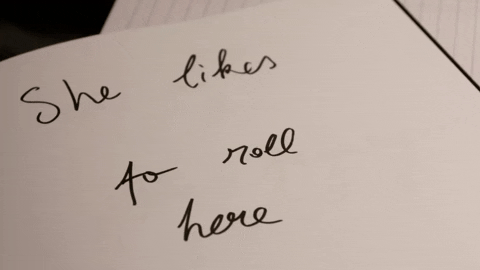 She likes
to roll
here